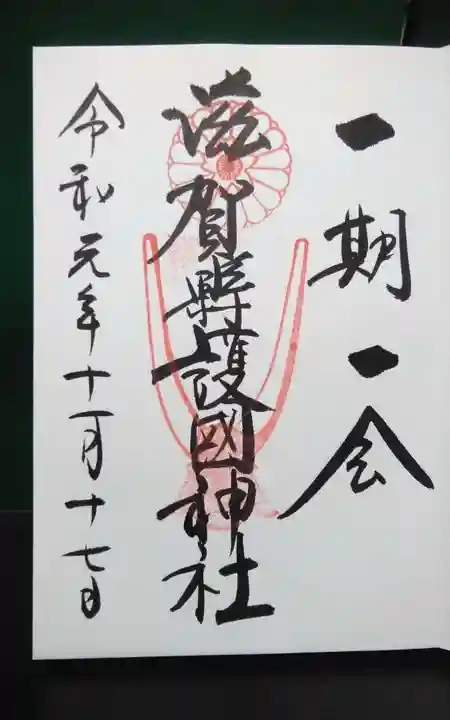 一期一会
滋賀縣護國神社
令和元年十一月十七日